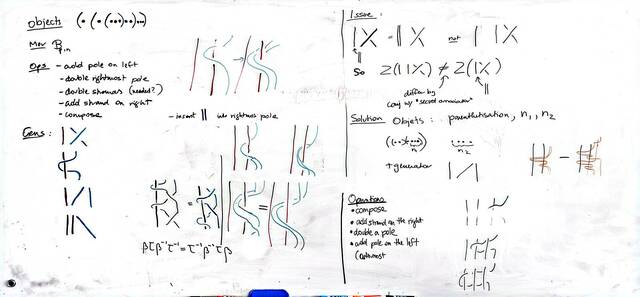 Objects (• (• (•••)••)•••)
Mor
Ops - add pole on left
- double rightmost pole
- double strands (needed?)
- add strand on right
- compose
- insert || into rightmost pole
Gens:
βτβ⁻¹τ⁻¹ = τ⁻¹β⁻¹τβ
Issue:
= not
So Z(||X) ≠ Z(|X)
differ by
conj w/ "second associator"
Solution Objects: parenthetisation, n₁, n₂
n₁ n₂
+ generator
Operations
• compose
• add strand on the right
• double a pole
• add pole on the left